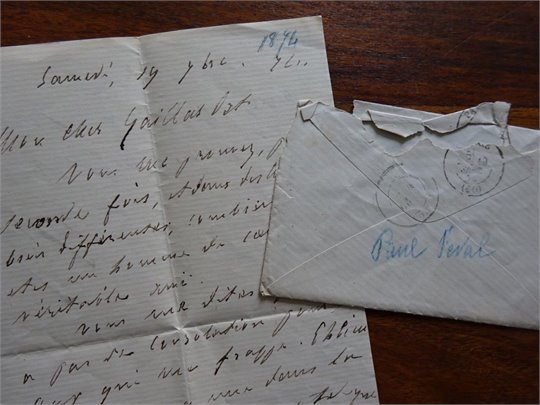 1874
Samedi, 19 7bre. 74.
Mon cher Gaillardet.
Vous me prouvez, p
seconde fois, et dans des
bien différentes, combien
êtes un homme de cœ
véritable ami.
Vous me dites
a pas de consolation pour
qui me frappe.
dans la
Paul Féval